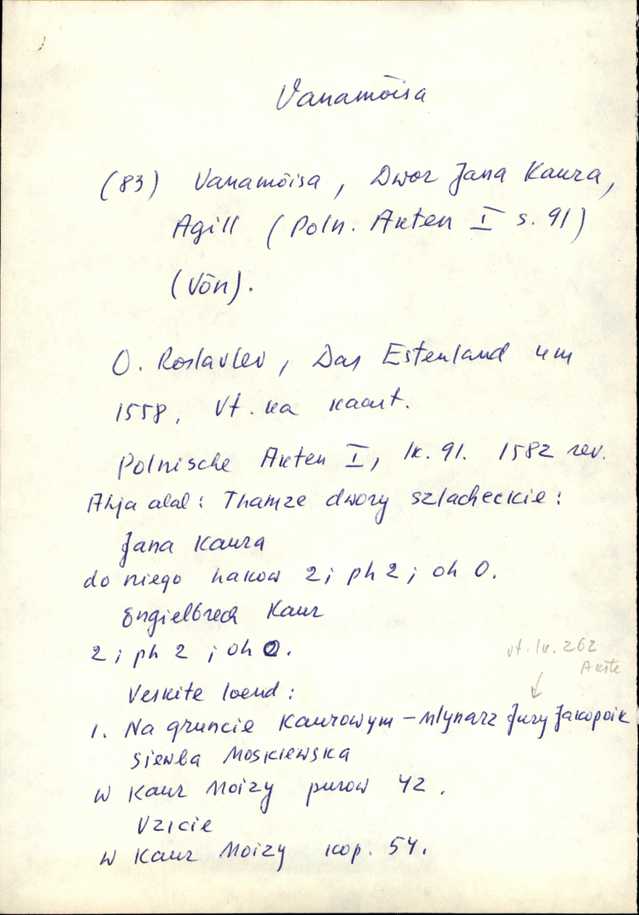 Vanamõisa
(83) Vanamõisa, Dwor Jana Kaura,
Agill (Poln. Akten I s. 91)
(Võn).
O. Roslavlev, Das Estenland um
1558, Vt. ka kaart.
Polnische Akten I, lk. 91. 1582 rev.
Ahja alal: Thamze dwory szlacheckie:
Jana Kaura
do niego hakow 2; ph 2; oh 0.
Engielbrech Kaur
2; ph 2; oh 0.
vt. lk. 262
Akste
Veskite loend:
1. Na gruncie Kaurowym – Mlynarz Jury Jakopoik
Siewba Moskiewska
W Kaur Moizy purow 42.
Vzicie
W Kaur Moizy kop. 54.